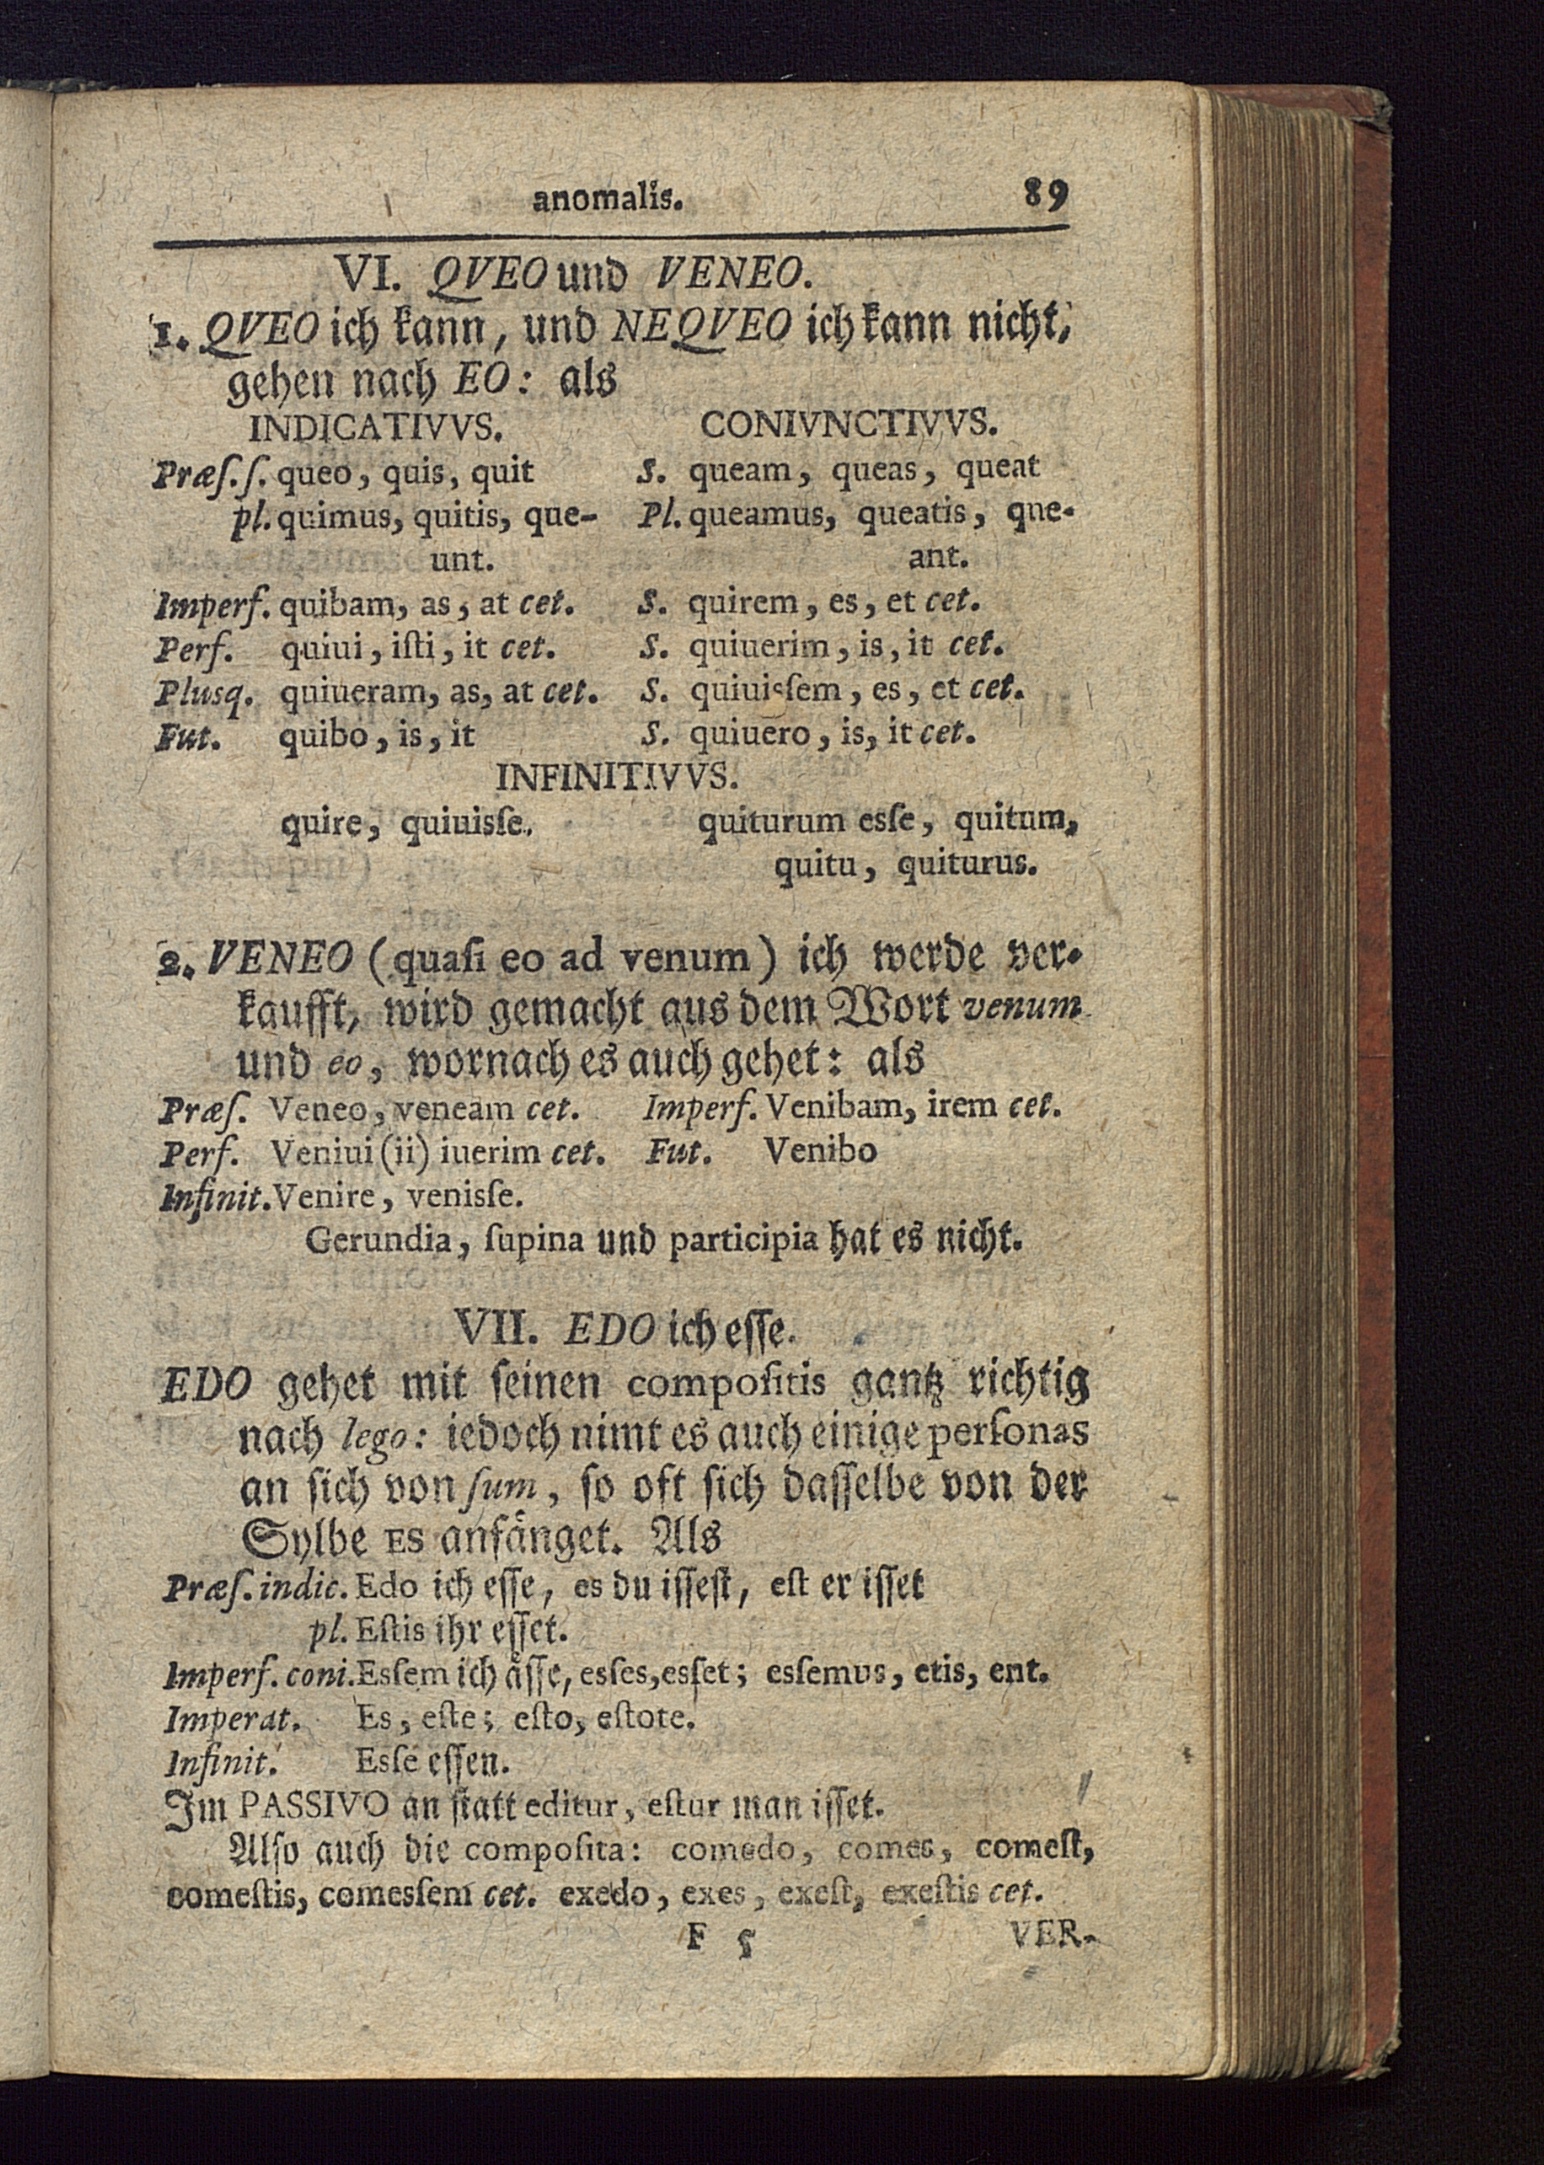 anomalis. 89
VI. QVEO und VENEO.
1. QVEO ich kann, und NEQVEO ich kann nicht,
gehen nach EO: als
INDICATIVVS. CONIVNCTIVVS.
Præſ. ſ. queo, quis, quit S. queam, queas, queat
pl. quimus, quitis, que- Pl. queamus, queatis, que-
unt. ant.
Imperf. quibam, as, at cet. S. quirem, es, et cet.
Perf. quiui, iſti, it cet. S. quiuerim, is, it cet.
Plusq. quiueram, as, at cet. S. quiuisſem, es, et cet.
Fut. quibo, is, it S. quiuero, is, it cet.
INFINITIVVS.
quire, quiuisſe. quiturum esſe, quitum,
quitu, quiturus.
2. VENEO (quaſi eo ad venum) ich werde ver-
kaufft, wird gemacht aus dem Wort venum
und eo, wornach es auch gehet: als
Præſ. Veneo, veneam cet. Imperf. Venibam, irem cet.
Perf. Veniui (ii) iuerim cet. Fut. Venibo
Infinit. Venire, venisſe.
Gerundia, ſupina und participia hat es nicht.
VII. EDO ich eſſe.
EDO gehet mit ſeinen compoſitis gantz richtig
nach lego: iedoch nimt es auch einige perſonas
an ſich von ſum, ſo oft ſich daſſelbe von der
Sylbe ES anfänget. Als
Præſ. indic. Edo ich eſſe, es du iſſeſt, eſt er iſſet
pl. Eſtis ihr eſſet.
Imperf. coni. Esſem ich äſſe, esſes, esſet; esſemus, etis, ent.
Imperat. Es, eſte; eſto, eſtote.
Infinit. Esſe eſſen.
Im PASSIVO an ſtatt editur, eſtur man iſſet.
Alſo auch die compoſita: comedo, comes, comeſt,
comeſtis, comesſem cet. exedo, exes, exeſt, exeſtis cet.
F 5 VER-